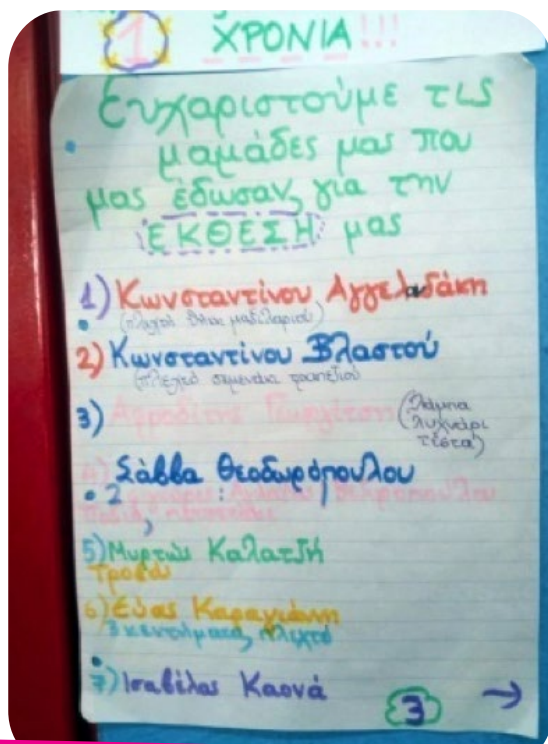 1 ΧΡΟΝΙΑ!!!
Ευχαριστούμε τις
μαμάδες μας που
μας έδωσαν, για την
ΕΚΘΕΣΗ μας
1) Κωνσταντίνου Αγγελιδάκη
2) Κωνσταντίνου Βλαστού
(πλεχτό σεμενάκι τραπεζιού
3) Αφροδίτης (Λάμπα
λυχνάρι
τέστα)
4) Σάββα Θεοδωρόπουλου
2
5) Μυρτώς Καλατζή
6) Εύας Καραγιάννη
3 κεντήματα, πλεχτό
7) Ισαβέλας Καονά
3 →